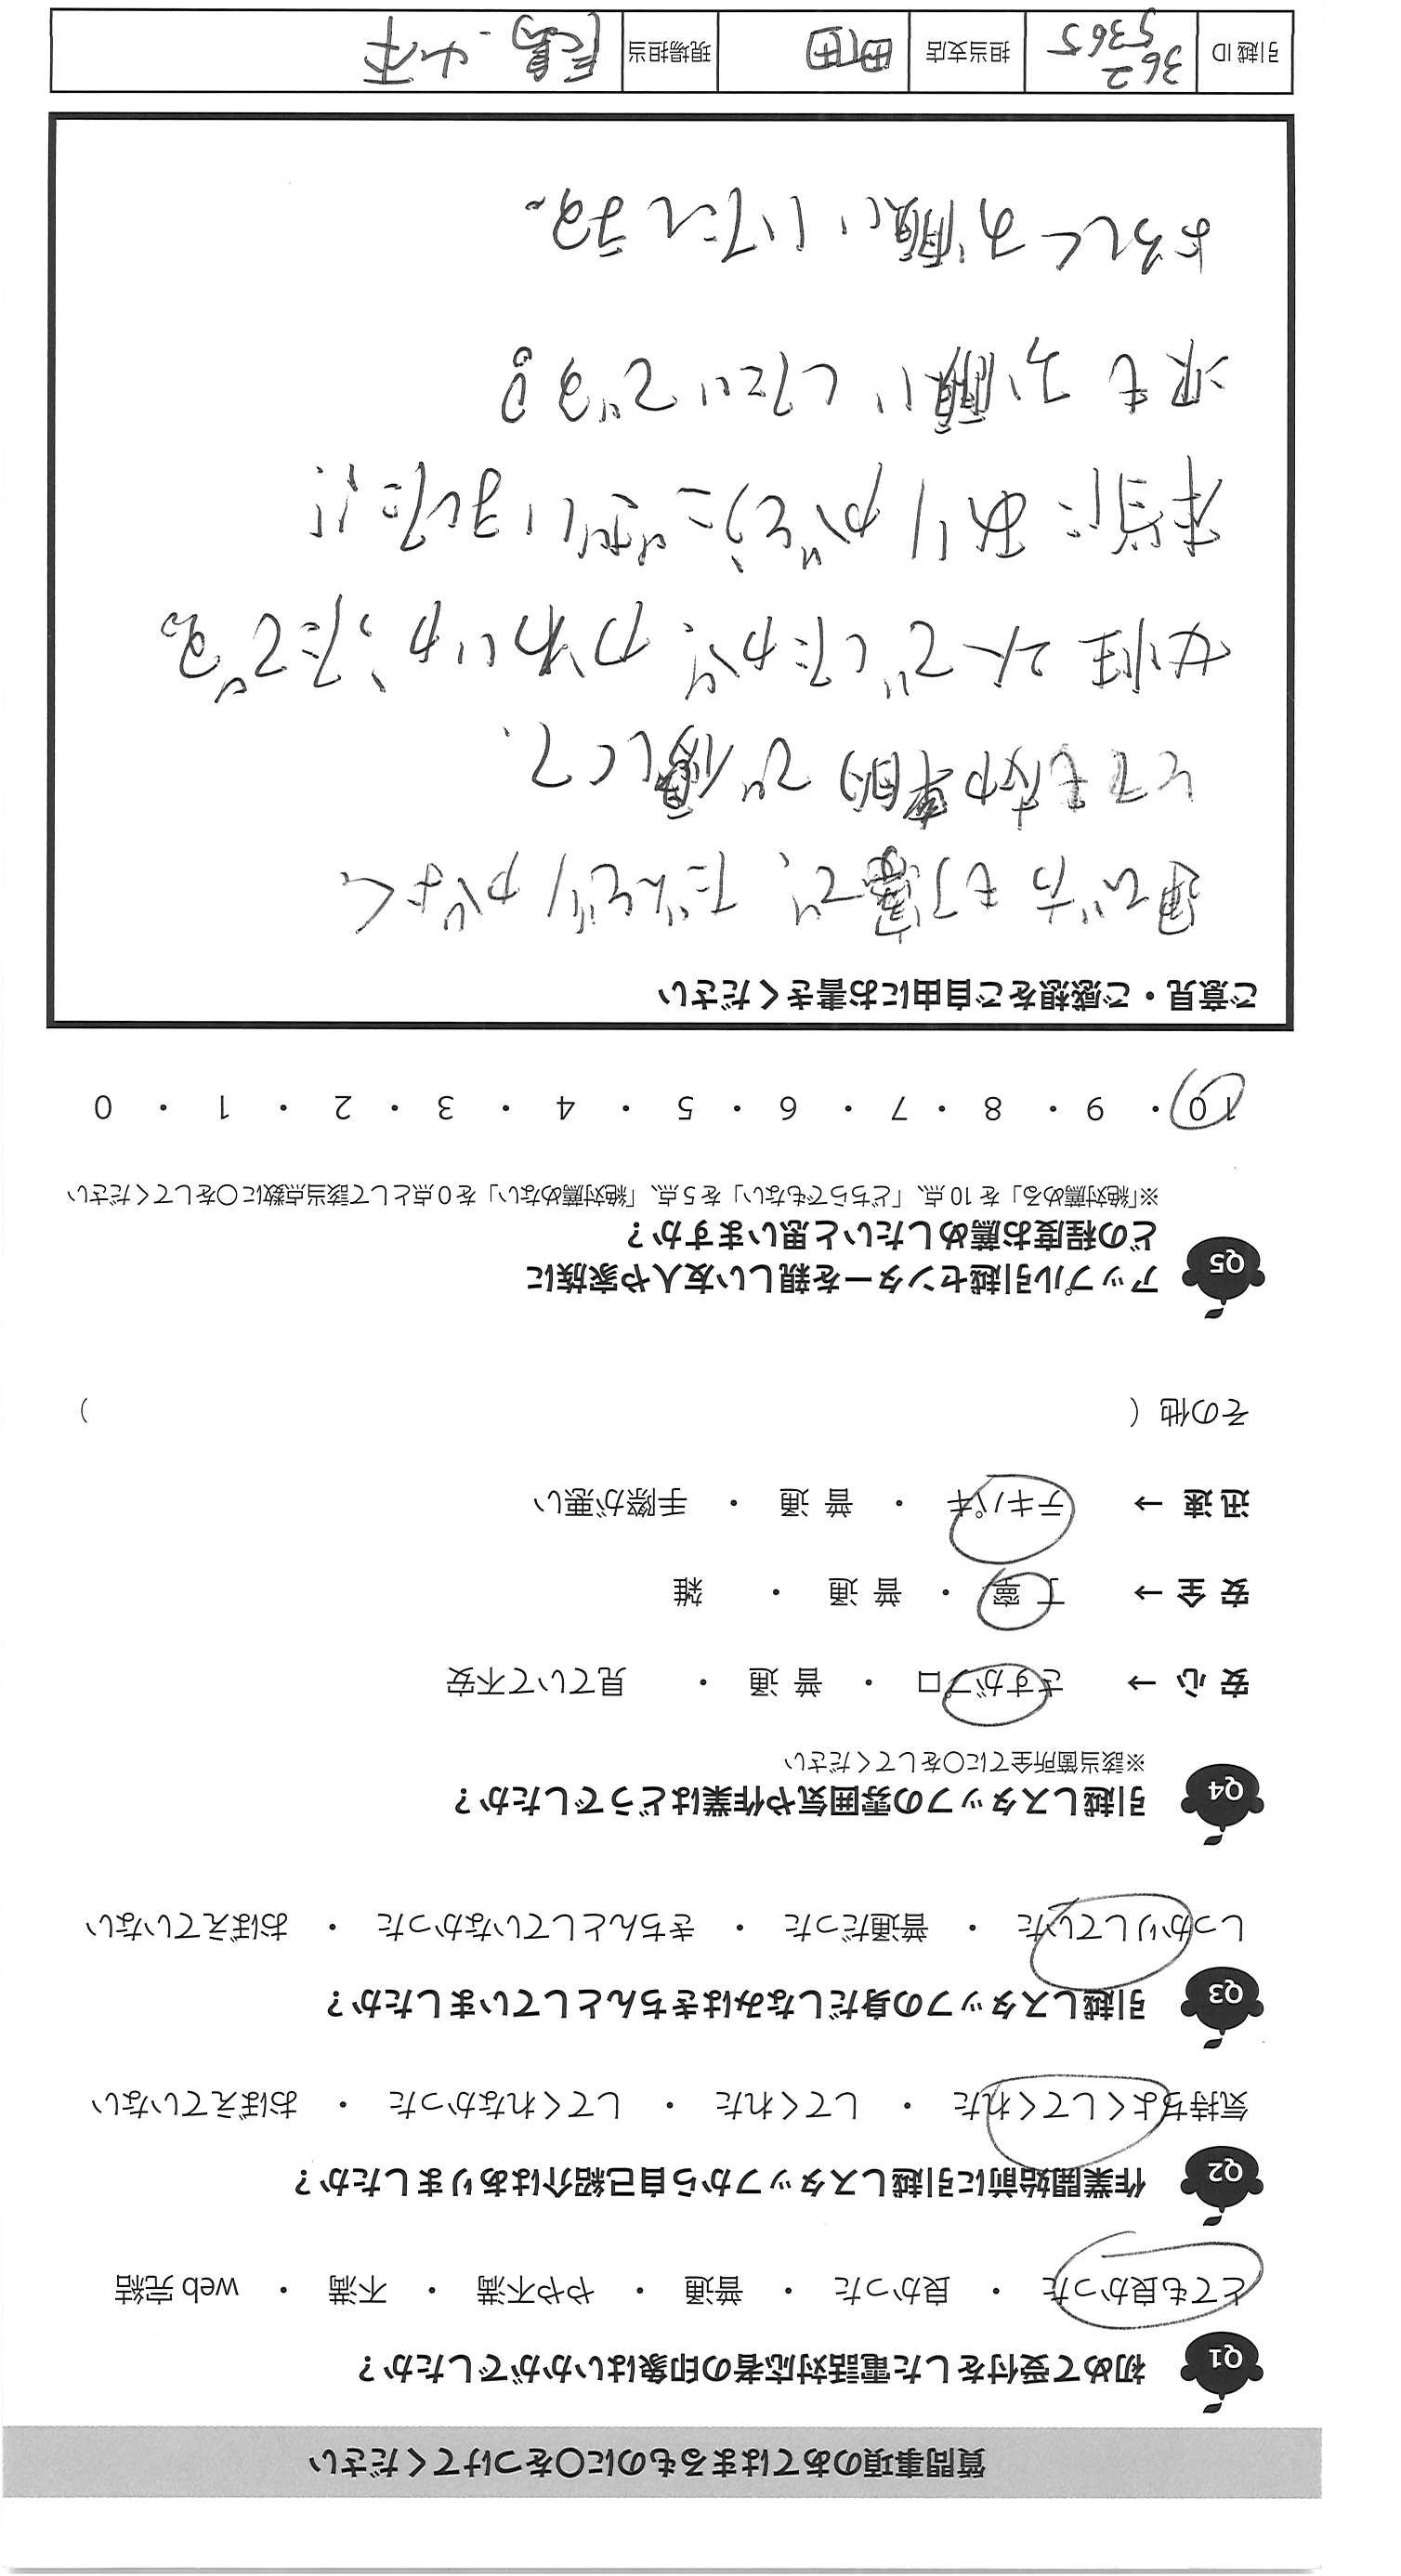 質問事項のあてはまるものに○をつけてください
Q1 初めて受付をした電話対応者の印象はいかがでしたか？
とても良かった ・ 良かった ・ 普通 ・ やや不満 ・ 不満 ・ web 完結
Q2 作業開始前に引越しスタッフから自己紹介はありましたか？
気持ちよくしてくれた ・ してくれた ・ してくれなかった ・ おぼえていない
Q3 引越しスタッフの身だしなみはきちんとしていましたか？
しっかりしていた ・ 普通だった ・ きちんとしていなかった ・ おぼえていない
Q4 引越しスタッフの雰囲気や作業はどうでしたか？
※該当箇所全てに○をしてください
安 心 → さすがプロ ・ 普 通 ・ 見ていて不安
安 全 → 丁 寧 ・ 普 通 ・ 雑
迅 速 → テキパキ ・ 普 通 ・ 手際が悪い
その他（ ）
Q5 アップル引越センターを親しい友人や家族に
どの程度お薦めしたいと思いますか？
※「絶対薦める」を 10 点、「どちらでもない」を 5 点、「絶対薦めない」を 0 点として該当点数に○をしてください
10 ・ 9 ・ 8 ・ 7 ・ 6 ・ 5 ・ 4 ・ 3 ・ 2 ・ 1 ・ 0
ご意見・ご感想をご自由にお書きください
運び方も丁寧で、だんどりがよく
とても効率的で優しくて、
女性2人でしたが、かわいかったです。
本当にありがとうございました!!
次もお願いしたいです。
よろしくお願いいたします。
引越 ID 362 5365 担当支店 町田 現場担当 長島